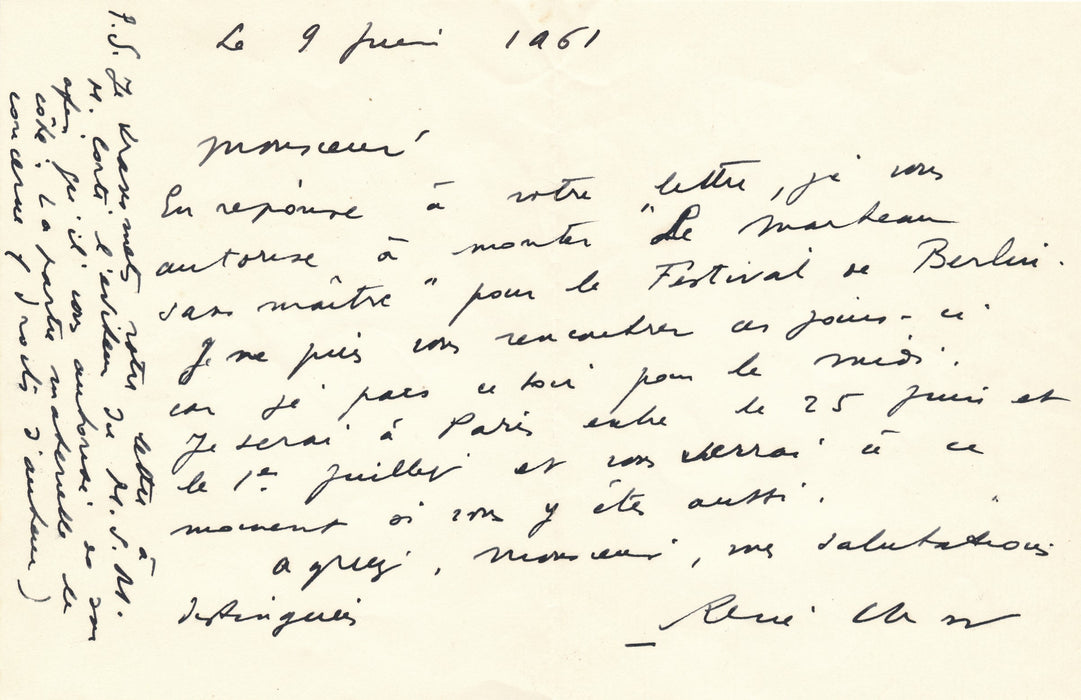 Le 9 Juin 1961
Monsieur
En réponse à votre lettre, je vous
autorise à monter "Le Marteau
sans maître" pour le Festival de Berlin.
Je ne puis vous rencontrer ces jours-ci
car je pars ce soir pour le midi.
Je serai à Paris entre le 25 Juin et
le 1er Juillet et vous verrai à ce
moment si vous y êtes aussi.
Agréez, Monsieur, mes salutations
distinguées
René Char
P.S. Je transmets votre lettre à
M. Corti l'éditeur du M.S.M.
afin qu'il vous autorise de son
côté. La partie matérielle le
concerne (droits d'auteur)